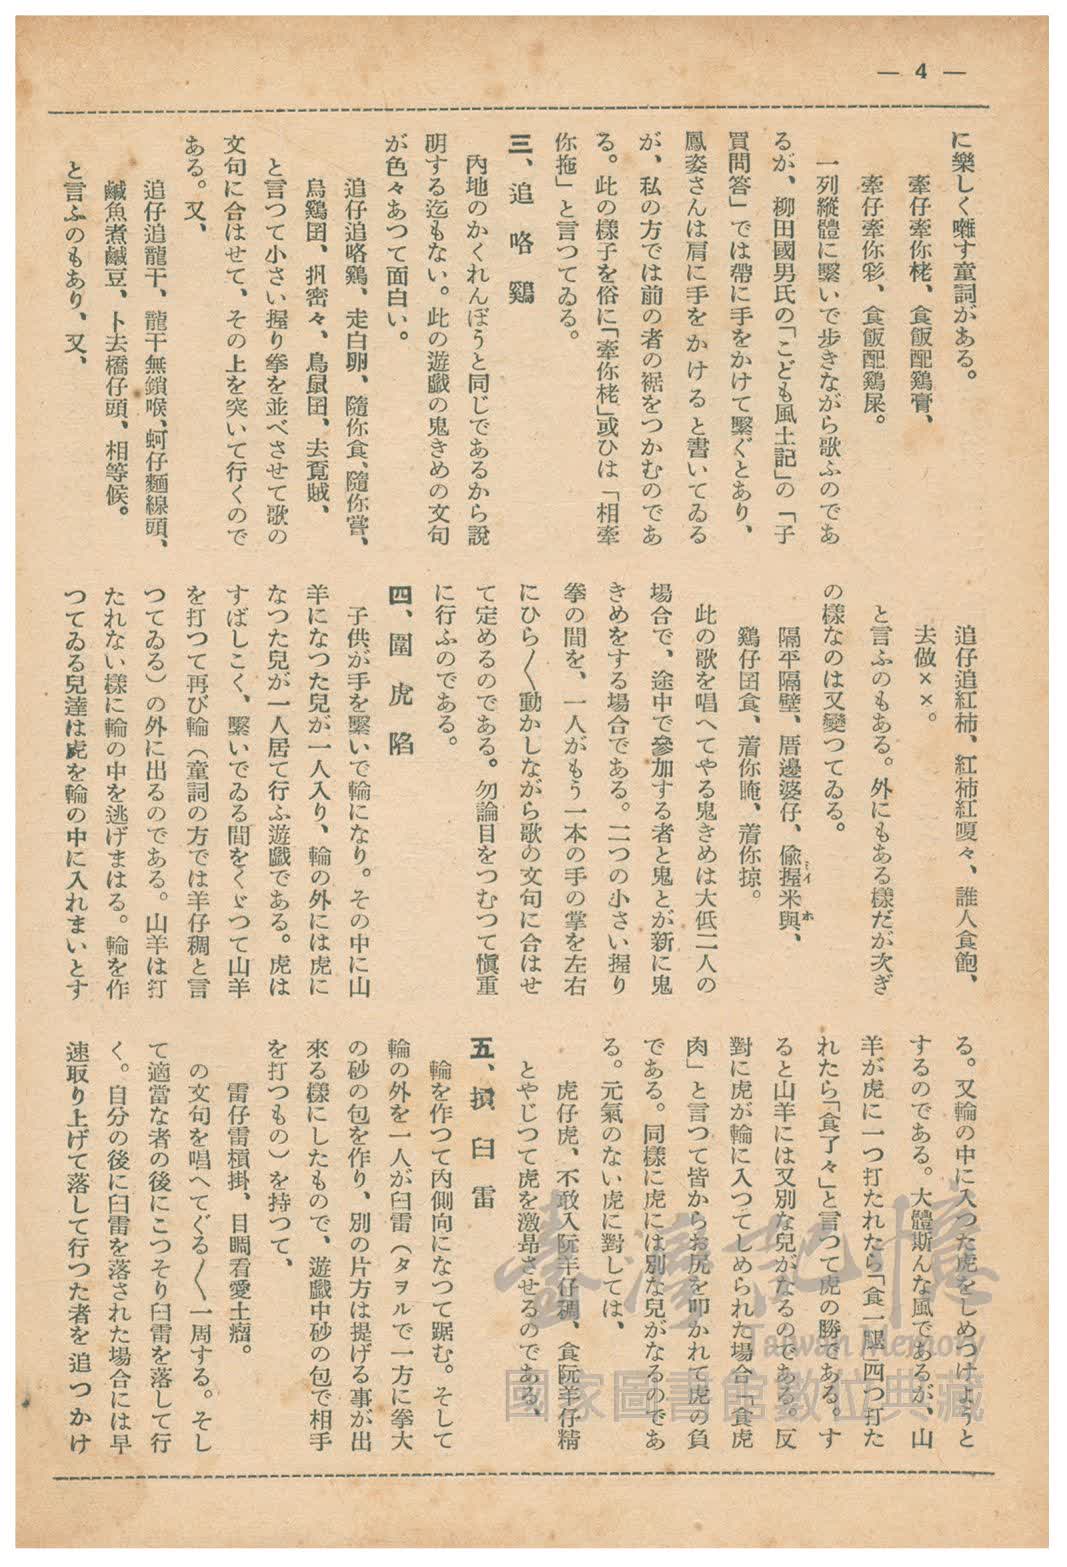 — 4 —
に樂しく囃す童詞がある。
牽仔牽你栳、食飯配鷄膏、
牽仔牽你彩、食飯配鷄屎。
一列縱體に繫いで步きながら歌ふのであ
るが、柳田國男氏の「こども風土記」の「子
買問答」では帶に手をかけて繫ぐとあり、
鳳姿さんは肩に手をかけると書いてゐる
が、私の方では前の者の裾をつかむのであ
る。此の樣子を俗に「牽你栳」或ひは「相牽
你拖」と言つてゐる。
三、追咯鷄
內地のかくれんぼうと同じであるから說
明する迄もない。此の遊戲の鬼きめの文句
が色々あつて面白い。
追仔追咯鷄、走白卵、隨你食、隨你嘗、
鳥鷄囝、抈密々、鳥鼠囝、去覓賊、
と言つて小さい握り拳を並べさせて歌の
文句に合はせて、その上を突いて行くので
ある。又、
追仔追龍干、龍干無鎖喉、蚵仔麵線頭、
鹹魚煮鹹豆、卜去橋仔頭、相等候。
と言ふのもあり、又、
追仔追紅柿、紅柿紅嗄々、誰人食飽、
去做××。
と言ふのもある。外にもある樣だが次ぎ
の樣なのは又變つてゐる。
隔平隔壁、厝邊婆仔、偸握米與、
ミイ ホ
鷄仔囝食、着你晻、着你掠。
此の歌を唱へてやる鬼きめは大低二人の
場合で、途中で參加する者と鬼とが新に鬼
きめをする場合である。二つの小さい握り
拳の間を、一人がもう一本の手の掌を左右
にひら〳〵動かしながら歌の文句に合はせ
て定めるのである。勿論目をつむつて愼重
に行ふのである。
四、圍虎陷
子供が手を繫いで輪になり。その中に山
羊になつた兒が一人入り、輪の外には虎に
なつた兒が一人居て行ふ遊戲である。虎は
すばしこく、繫いでゐる間をくゞつて山羊
を打つて再び輪（童詞の方では羊仔稠と言
つてゐる）の外に出るのである。山羊は打
たれない樣に輪の中を逃げまはる。輪を作
つてゐる兒達は虎を輪の中に入れまいとす
る。又輪の中に入つた虎をしめつけようと
するのである。大體斯んな風であるが、山
羊が虎に一つ打たれたら「食一腿」四つ打た
れたら「食了々」と言つて虎の勝である。す
ると山羊には又別な兒がなるのである。反
對に虎が輪に入つてしめられた場合「食虎
肉」と言つて皆からお尻を叩かれて虎の負
である。同樣に虎には別な兒がなるのであ
る。元氣のない虎に對しては、
虎仔虎、不敢入阮羊仔稠、食阮羊仔精
とやじつて虎を激昂させるのである、
五、摃臼雷
輪を作つて內側向になつて踞む。そして
輪の外を一人が臼雷（タヲルで一方に拳大
の砂の包を作り、別の片方は提げる事が出
來る樣にしたもので、遊戲中砂の包で相手
を打つもの）を持つて、
雷仔雷槓掛、目睭看愛土瘤。
の文句を唱へてぐる〳〵一周する。そし
て適當な者の後にこつそり臼雷を落して行
く。自分の後に臼雷を落された場合には早
速取り上げて落して行つた者を追つかけ
臺灣記憶
Taiwan Memory
國家圖書館數位典藏